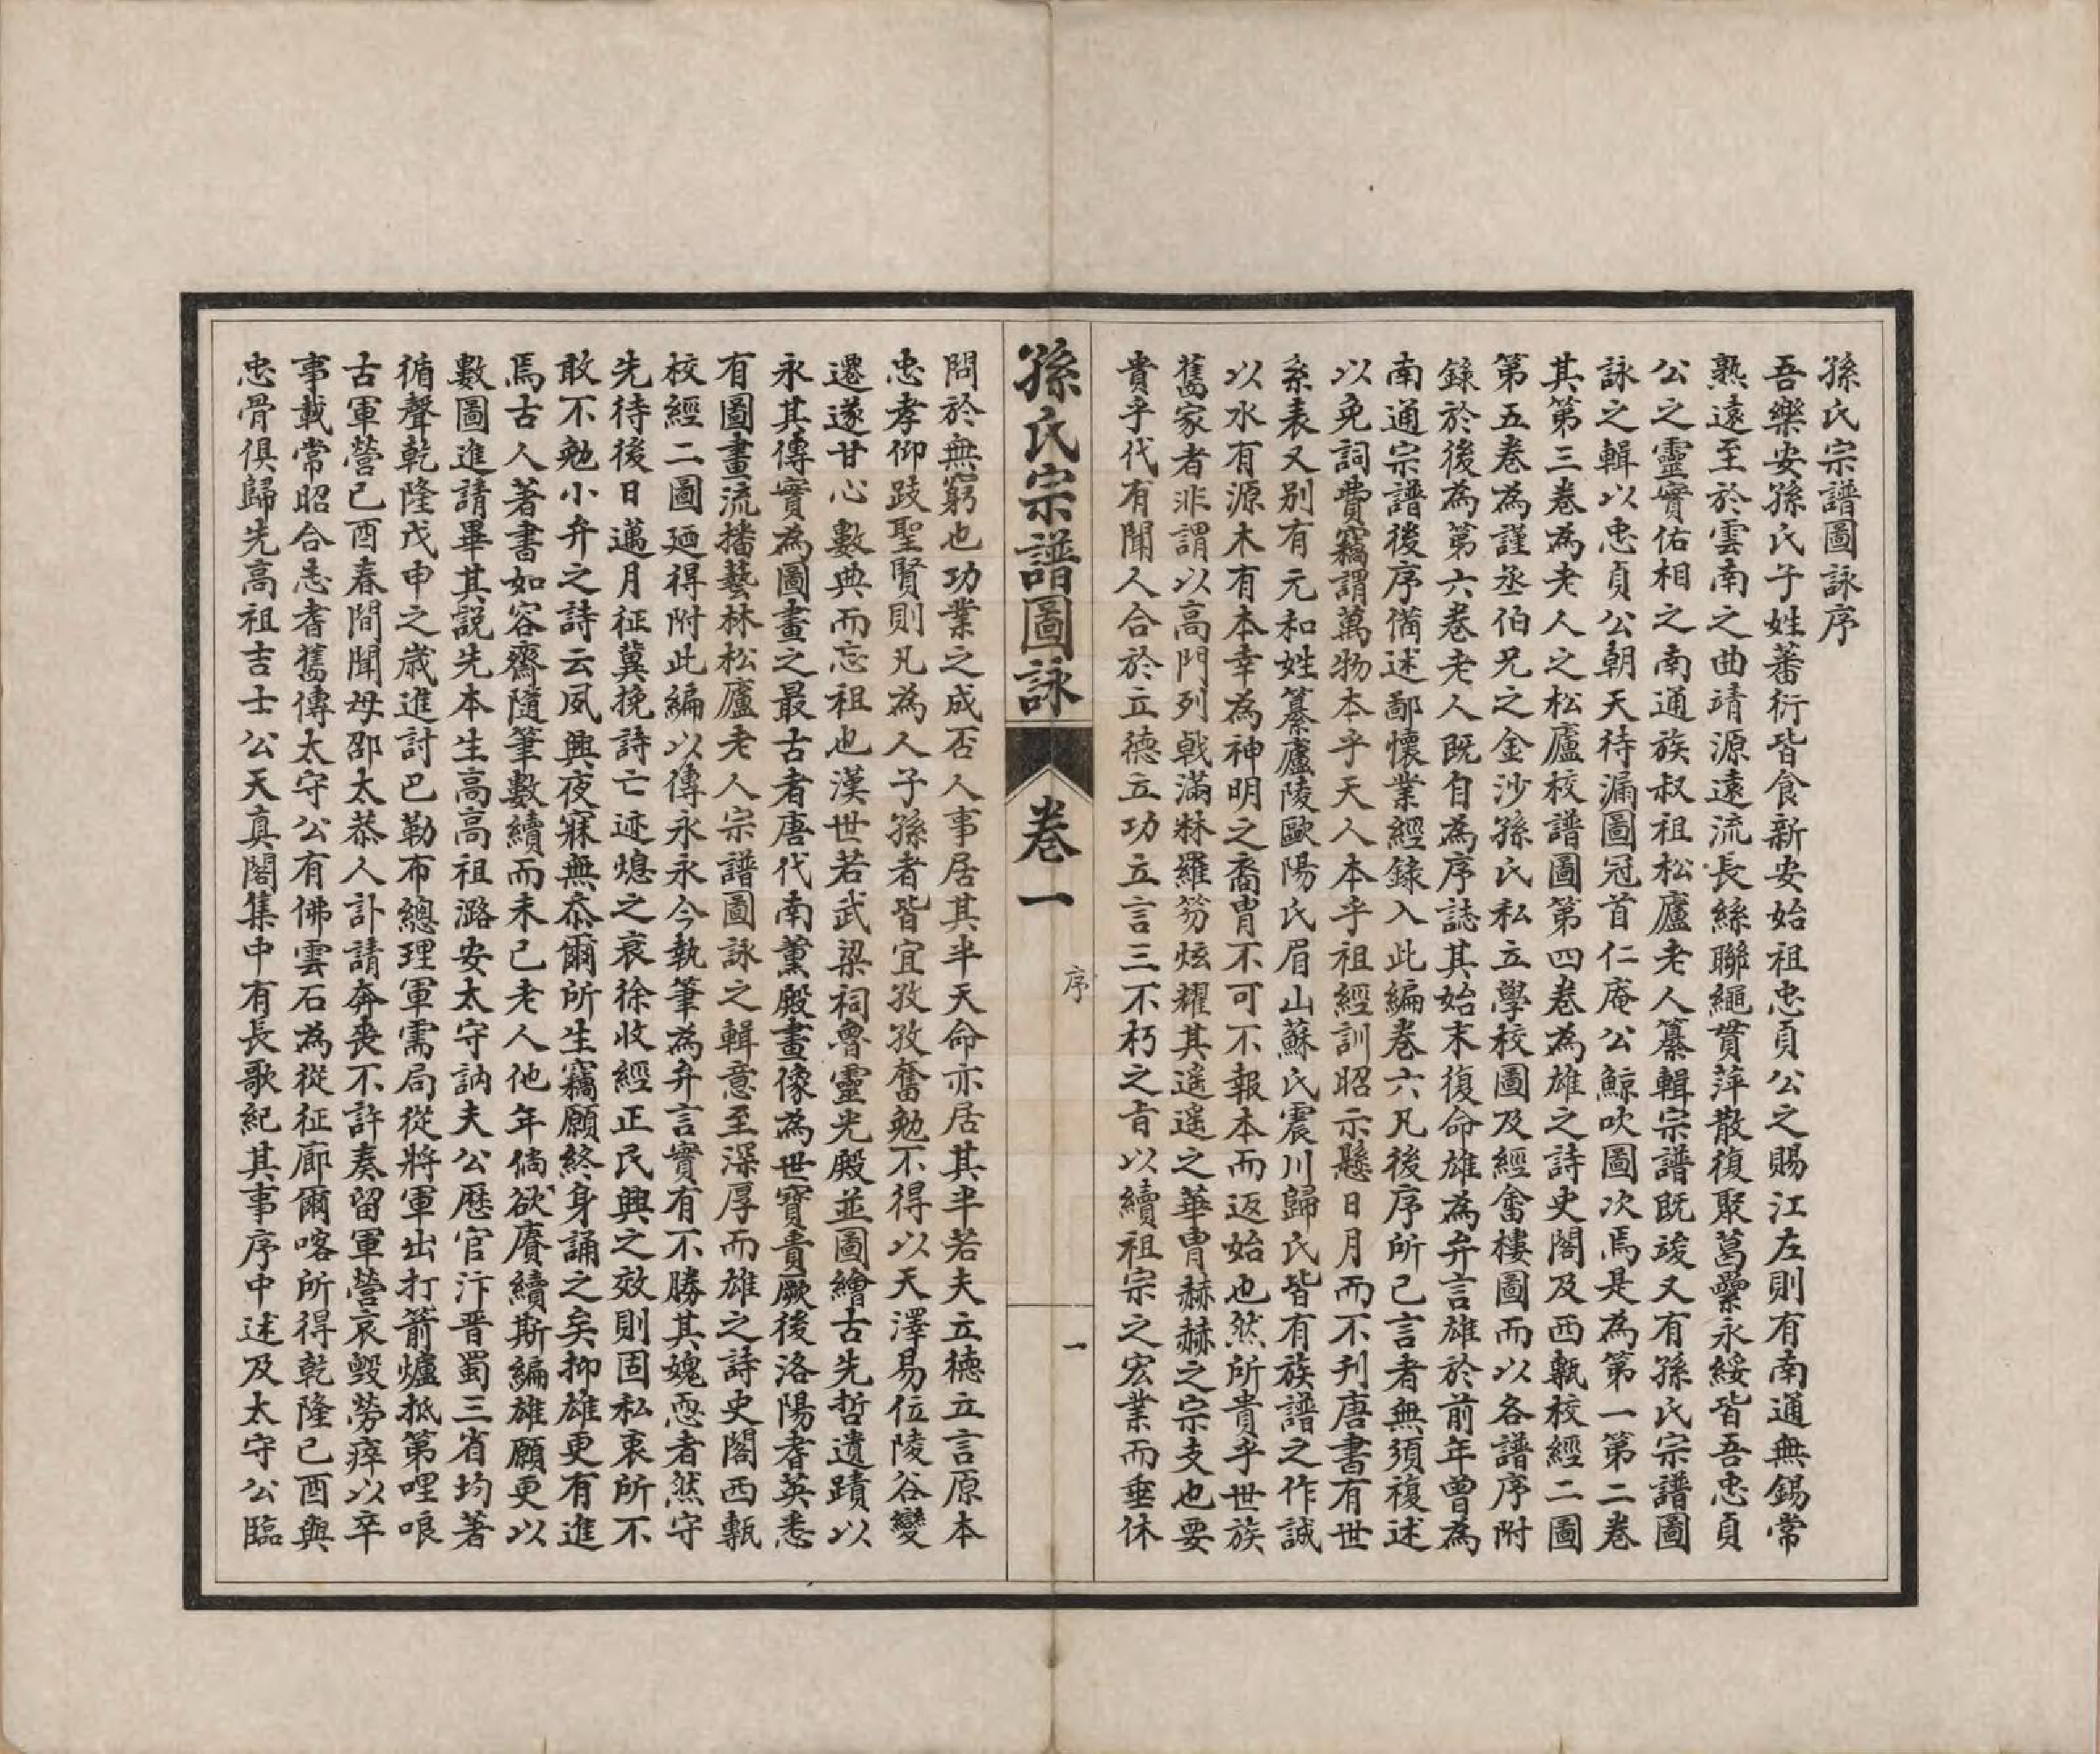 孫氏宗譜圖詠序
吾樂安孫氏子姓蕃衍皆食新安始祖忠貞公之賜江左則有南通無錫常
熟遠至於雲南之曲靖源遠流長絲聯繩貫萍散復聚葛虆永綏皆吾忠貞
公之靈實佑相之南通族叔祖松廬老人纂輯宗譜既竣又有孫氏宗譜圖
詠之輯以忠貞公朝天待漏圖冠首仁庵公鯨吹圖次焉是為第一第二卷
其第三卷為老人之松廬校譜圖第四卷為雄之詩史閣及西甎校經二圖
第五卷為謹丞伯兄之金沙孫氏私立學校圖及經畬樓圖而以各譜序附
錄於後為第六卷老人既自為序誌其始末復命雄為弁言雄於前年曾為
南通宗譜後序備述鄙懷業經錄入此編卷六凡後序所已言者無須複述
以免詞費竊謂萬物本乎天人本乎祖經訓昭示懸日月而不刊唐書有世
系表又別有元和姓纂廬陵歐陽氏眉山蘇氏震川歸氏皆有族譜之作誠
以水有源木有本幸為神明之裔胄不可不報本而返始也然所貴乎世族
舊家者非謂以高門列戟滿牀羅笏炫耀其遙遙之華胄赫赫之宗支也要
貴乎代有聞人合於立德立功立言三不朽之旨以續祖宗之宏業而垂休
孫氏宗譜圖詠
卷一
序
一
問於無窮也功業之成否人事居其半天命亦居其半若夫立德立言原本
忠孝仰跂聖賢則凡為人子孫者皆宜孜孜奮勉不得以天澤易位陵谷變
遷遂甘心數典而忘祖也漢世若武梁祠魯靈光殿並圖繪古先哲遺蹟以
永其傳實為圖畫之最古者唐代南薰殿畫像為世寶貴厥後洛陽耆英悉
有圖畫流播藝林松廬老人宗譜圖詠之輯意至深厚而雄之詩史閣西甎
校經二圖廼得附此編以傳永永今執筆為弁言實有不勝其媿恧者然守
先待後日邁月征冀挽詩亡迹熄之哀徐收經正民興之效則固私衷所不
敢不勉小弁之詩云夙興夜寐無忝爾所生竊願終身誦之矣抑雄更有進
焉古人著書如容齋隨筆數續而未已老人他年倘欲賡續斯編雄願更以
數圖進請畢其說先本生高高祖潞安太守訥夫公歷官汴晋蜀三省均著
循聲乾隆戊申之歲進討巴勒布總理軍需局從將軍出打箭爐抵第哩哴
古軍營己酉春間聞母邵太恭人訃請奔喪不許奏留軍營哀毀勞瘁以卒
事載常昭合志耆舊傳太守公有佛雲石為從征廓爾喀所得乾隆己酉與
忠骨俱歸先高祖吉士公天真閣集中有長歌紀其事序中述及太守公臨